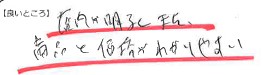 【良いところ】
店内が明るく
商品と価格がわかりやすい